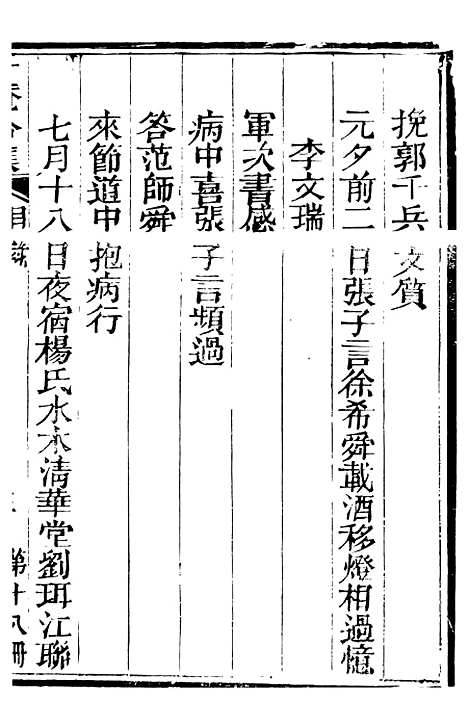 挽郭千兵文質
元夕前二日張子言徐希舜載酒移燈相過憶
李文瑞
軍次書感
病中喜張子言頻過
答范師舜
來節道中抱病行
七月十八日夜宿楊氏水木清華堂劉珥江聯
集
目錄
第十八冊